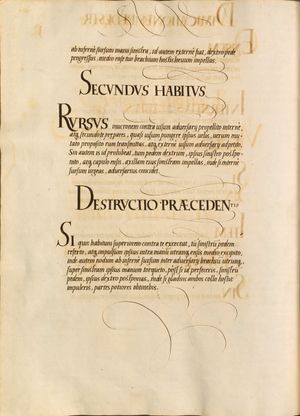 ab inferne sursum manu sinistra, id autem externe fiat, dextro pede
progressus, medio ense tuo brachium hostis sursum impellas.
SECVNDVS HABITVS
RVRSVS mucronem contra visum adversarij propellito interne,
atq secundo te prepares, quasi ipsum pungere ipsius velis, verum mu-
tato proposito eum transmittas, atq externe visum adversarij adpetito.
Sin autem is id prohibeat, tum pedem dextrum, ipsius sinistro postpo-
sito, atq capulo ensis, axillam eius sinistram impellas, inde si interne
sursum urgeas, adversarius concidet.
DESTRVCTIO PRÆCEDENTIS
SI quis habitum superiorem contra te exerceat, tu sinistrum pedem
referto, atq impulsum ipsius intra manus utrasq ensis medio excipito,
inde autem nodum ab inferne sursum inter adversarij brachia utrunq,
super sinistram ipsius manum torqueto, post si id perfeceris, sinistrum
pedem, ipsius dextro postponas, inde si gladium ambos collo hostis
impuleris, partes potiores obtinebis.